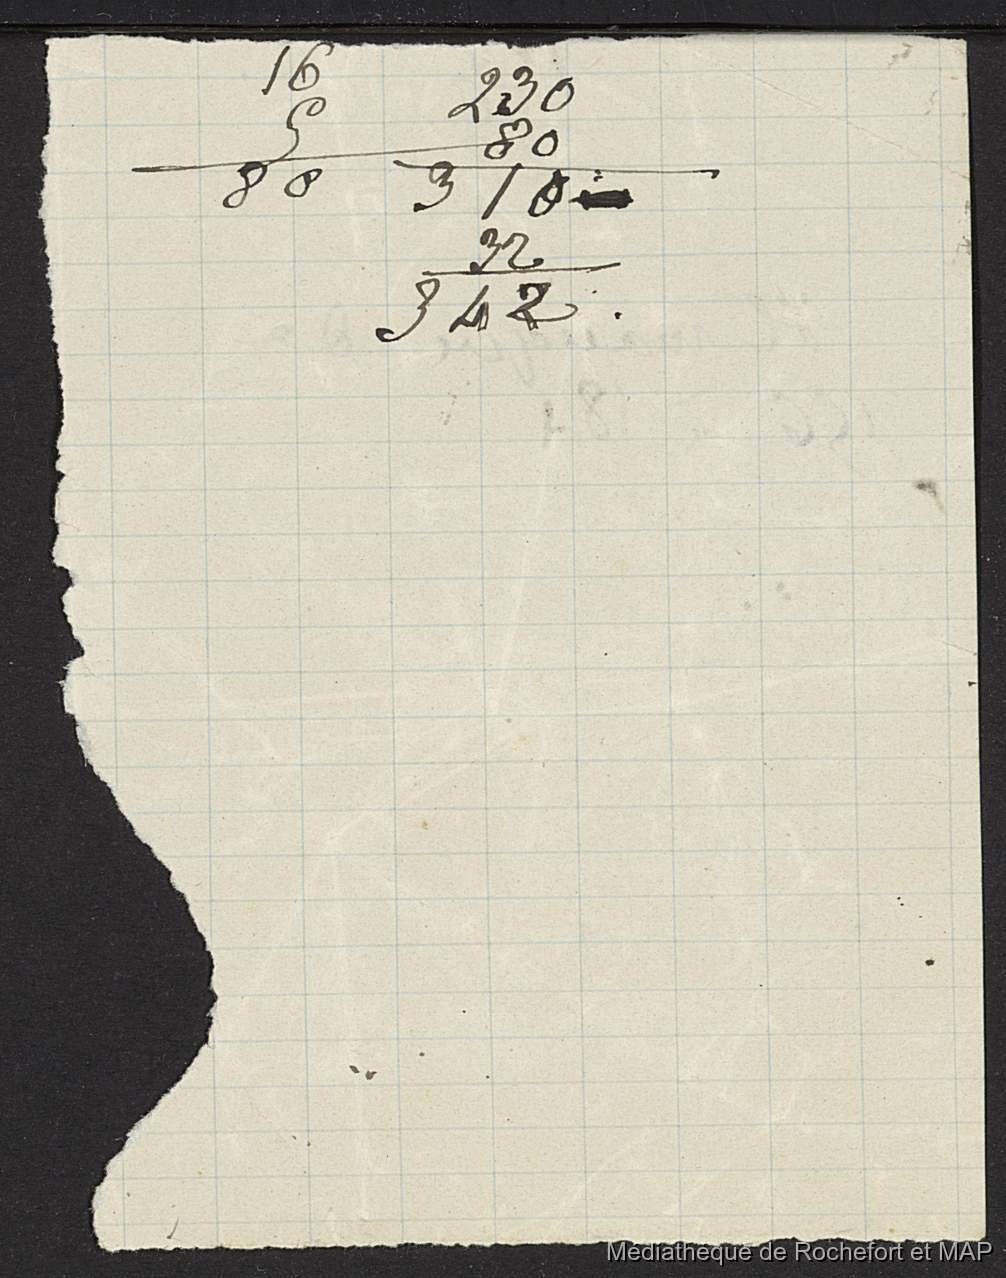 16
5
80
230
80
310
32
342.
Mediatheque de Rochefort et MAP